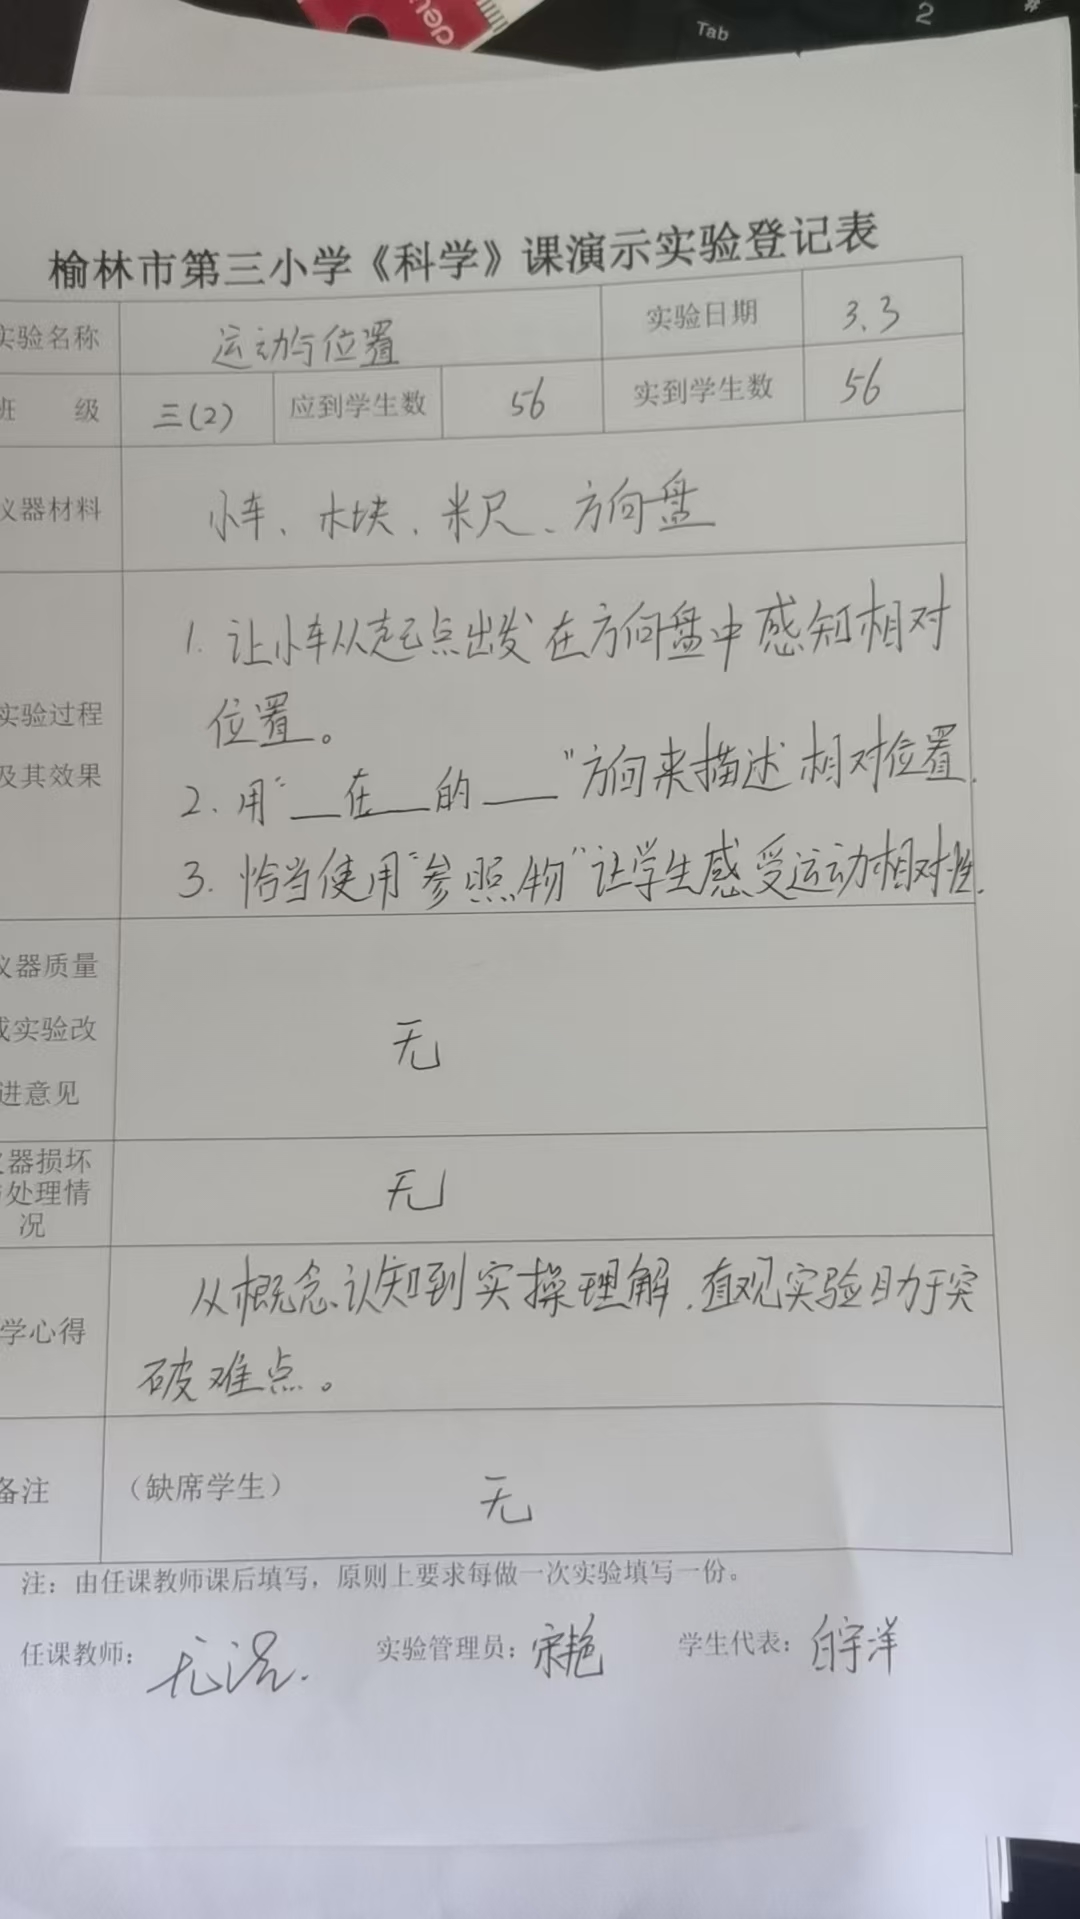 Tab
2
#
榆林市第三小学《科学》课演示实验登记表
实验名称 运动与位置 实验日期 3.3
班 级 三(2) 应到学生数 56 实到学生数 56
仪器材料 小车、木块、米尺、方向盘
1. 让小车从起点出发在方向盘中感知相对
位置。
实验过程
及其效果
2. 用"__在__的__"方向来描述相对位置.
3. 恰当使用"参照物"让学生感受运动相对性.
仪器质量
或实验改
进意见
无
器损坏
处理情
况
无
从概念认知到实操理解,直观实验助于突
破难点。
学心得
备注 (缺席学生) 无
注:由任课教师课后填写,原则上要求每做一次实验填写一份。
任课教师: 实验管理员:宋艳 学生代表:白宇洋